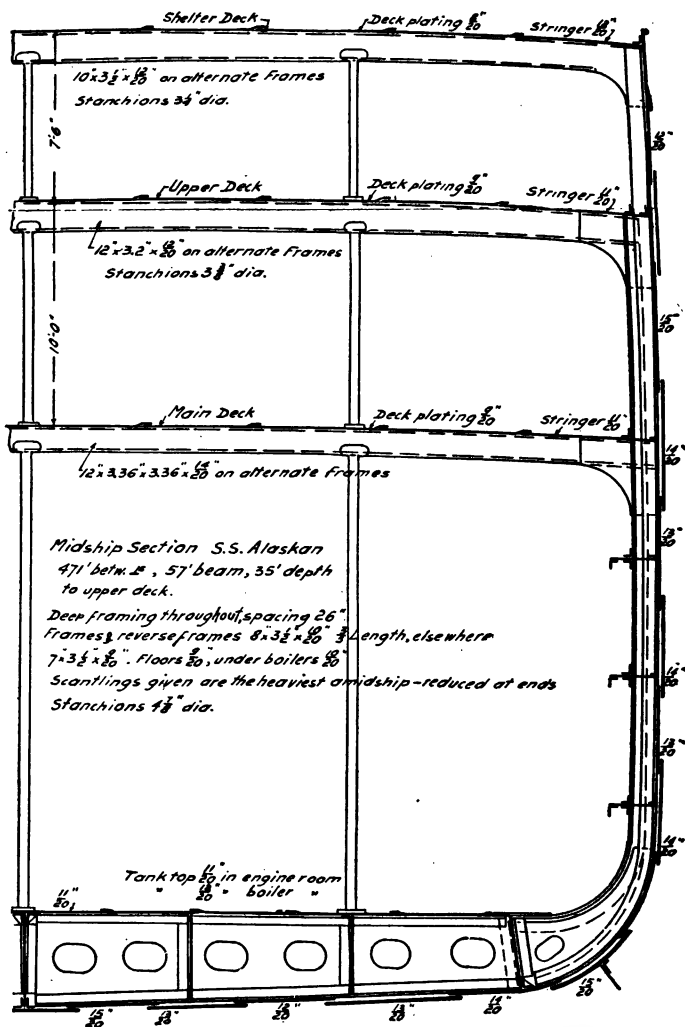 Shelter Deck
Deck plating
Stringer
on alternate Frames
Stanchions dia.
7'-6"
Upper Deck
Deck plating 9/20"
Stringer 11/20"
12" x 3.2" x on alternate Frames
Stanchions dia.
10'-0"
Main Deck
Deck plating 9/20"
Stringer 11/20"
12" x 3.36" x 3.36" x 14/20" on alternate Frames
Midship Section S.S. Alaskan
471' betw. , 57' beam, 35' depth
to upper deck.
Deep framing throughout, spacing 26"
Frames & reverse frames 8" x 3½" x 10/20" Length, elsewhere
7" x 3½" x 9/20". Floors 9/20", under boilers 10/20"
Scantlings given are the heaviest amidship - reduced at ends
Stanchions dia.
15/20"
14/20"
13/20"
14/20"
13/20"
14/20"
Tank top 11/20" in engine room
" " boiler "
11/20"
15/20"
13/20"
14/20"
15/20"